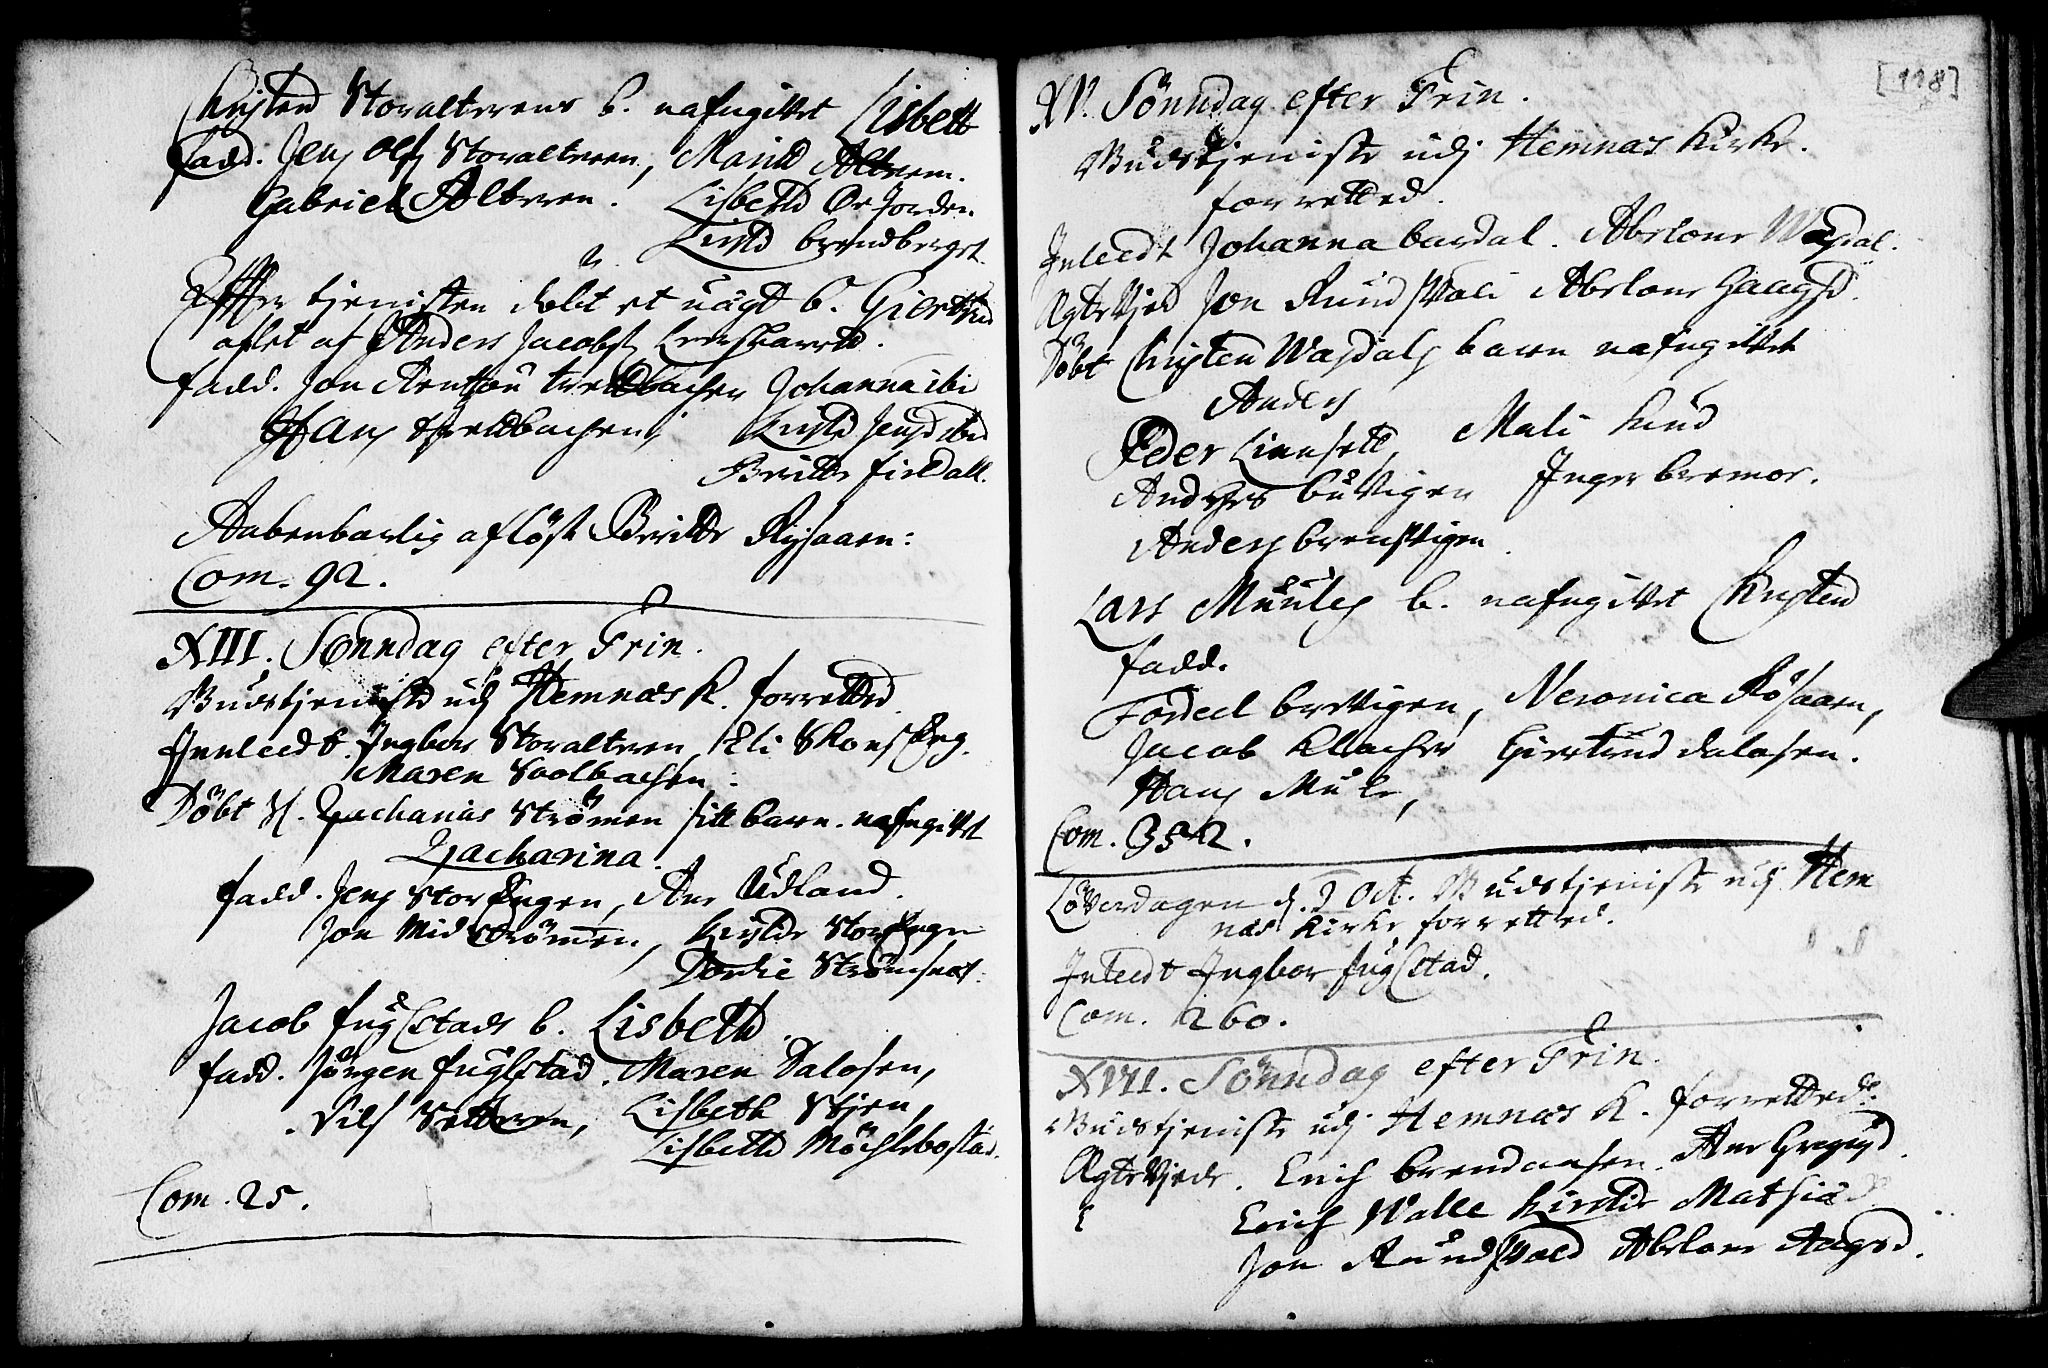 Christen Storalterens b. nafngivet Lisbett
fadd. Jens Ols: Storalteren, Marit Alteren.
Gabriel Alteren. Lisbeth Or Jorden.
Kirsti brendberget
Effter tjenisten döbt et uägt b. Giertrud
aflet af Anders Jacobs:
fadd. Jon Arntsøn Johanna ibi
Hans Kirsti Jensd ibid
Beritte firdall.
Aabenbarlig aflöst Beritte Rysaaen:
Com. 92.
XIII. Sönndag efter Trin.
Gudstjeniste udj Hemnæs K. forretted.
Innleedt. Ingbor Storalteren, Eli Skons Eng.
Maren Soolbachen:
Döbt Zacharias Strömen sitt barn. nafngivet
Zacharina.
fadd. Jens Stor Engen, Ane Udland.
Jon Midströmen, Kirsti Stor Engen
Dorthe Strömsnes.
Jacob fuglstads b. Lisbeth
fadd. Jörgen fuglstad. Maren Dalosen,
Nils Setteren, Lisbeth Stien,
Lisbeth Möchlebostad.
Com. 25.
[118]
XV. Sönndag efter Trin.
Gudstjeniste udj Hemnæs Kirke.
forretted.
Inleedt Johanna bardal. Abelone Wasdal.
Ægte Viet Jon Rundsvold Abelone Haagsd.
Döbt Christen Wasdals barn nafngivet
Anders
Peder Leenset, Mali Lund
Anders buvigen Inger bremor.
Anders brensvigen.
Lars Muules b. nafngivet Christen
fadd.
Fordeel brevigen, Veronica Rösaaen,
Jacob Klachen Giertrud dalosen.
Hans Mule,
Com. 352.
Löverdagen d. 2 Oct. Gudstjeniste udj Hem
næs Kirke forretted.
Inleedt Ingbor fuglstad.
Com. 260.
XVII. Sönndag efter Trin.
Gudstjeniste udj Hemnæs K. forretted:
Ægte Viede. Erich brendaasen. Ane Gregersd.
Erich Valle Kirstie Mathiæd
Jon Rundsvold Abelone Aagsd.